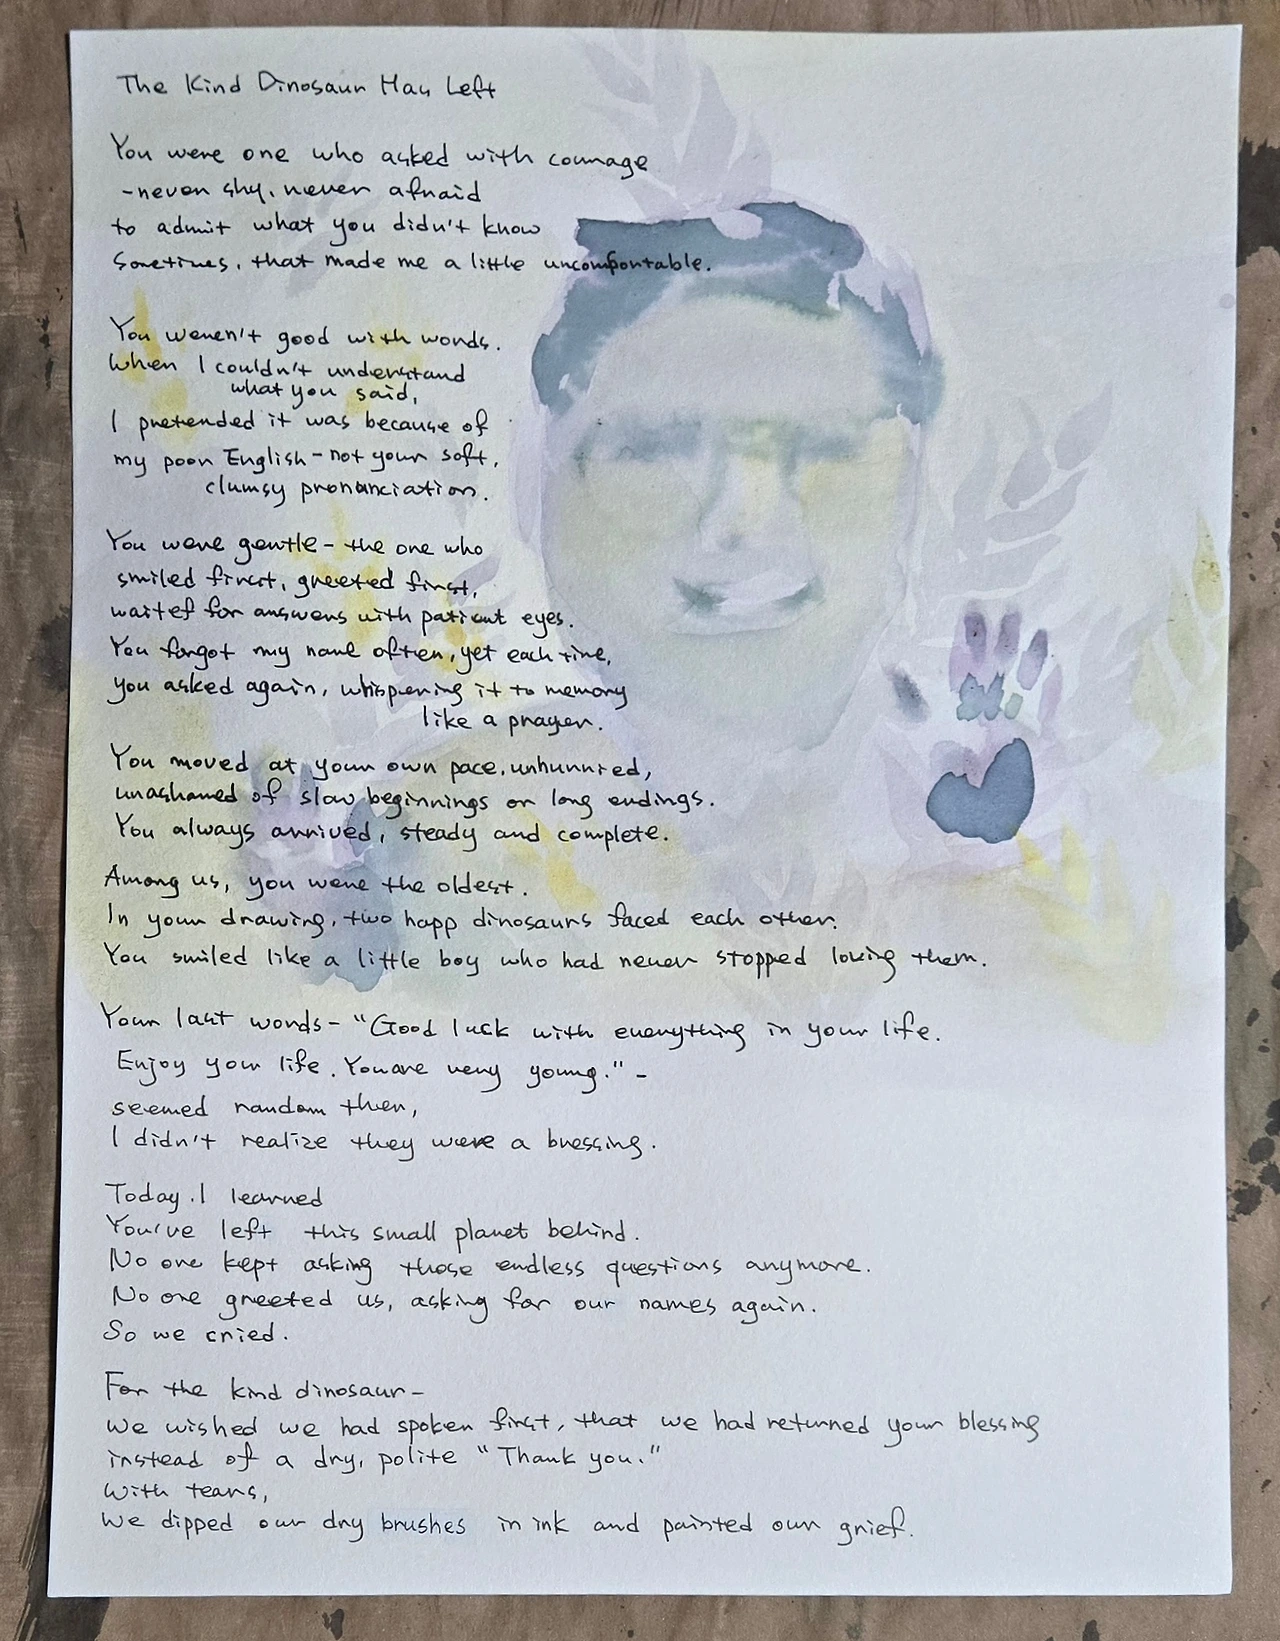 The Kind Dinosaur Has Left
You were one who asked with courage
-never shy, never afraid
to admit what you didn't know
Sometimes, that made me a little uncomfortable.
You weren't good with words.
When I couldn't understand
what you said,
I pretended it was because of
my poor English - not your soft,
clumsy pronanciation.
You were gentle - the one who
smiled first, greeted first,
waitef for answers with patient eyes.
You forgot my name often, yet each time,
you asked again, whispering it to memory
like a prayer.
You moved at your own pace, unhurried,
unashamed of slow beginnings or long endings.
You always arrived, steady and complete.
Among us, you were the oldest.
In your drawing, two happ dinosaurs faced each other.
You smiled like a little boy who had never stopped loving them.
Your last words - "Good luck with everything in your life.
Enjoy your life. You are very young." -
seemed random then,
I didn't realize they were a bressing.
Today, I learned
You've left this small planet behind.
No one kept asking those endless questions anymore.
No one greeted us, asking for our names again.
So we cried.
For the kind dinosaur -
We wished we had spoken first, that we had returned your blessing
instead of a dry, polite "Thank you."
With tears,
We dipped our dry brushes in ink and painted our grief.